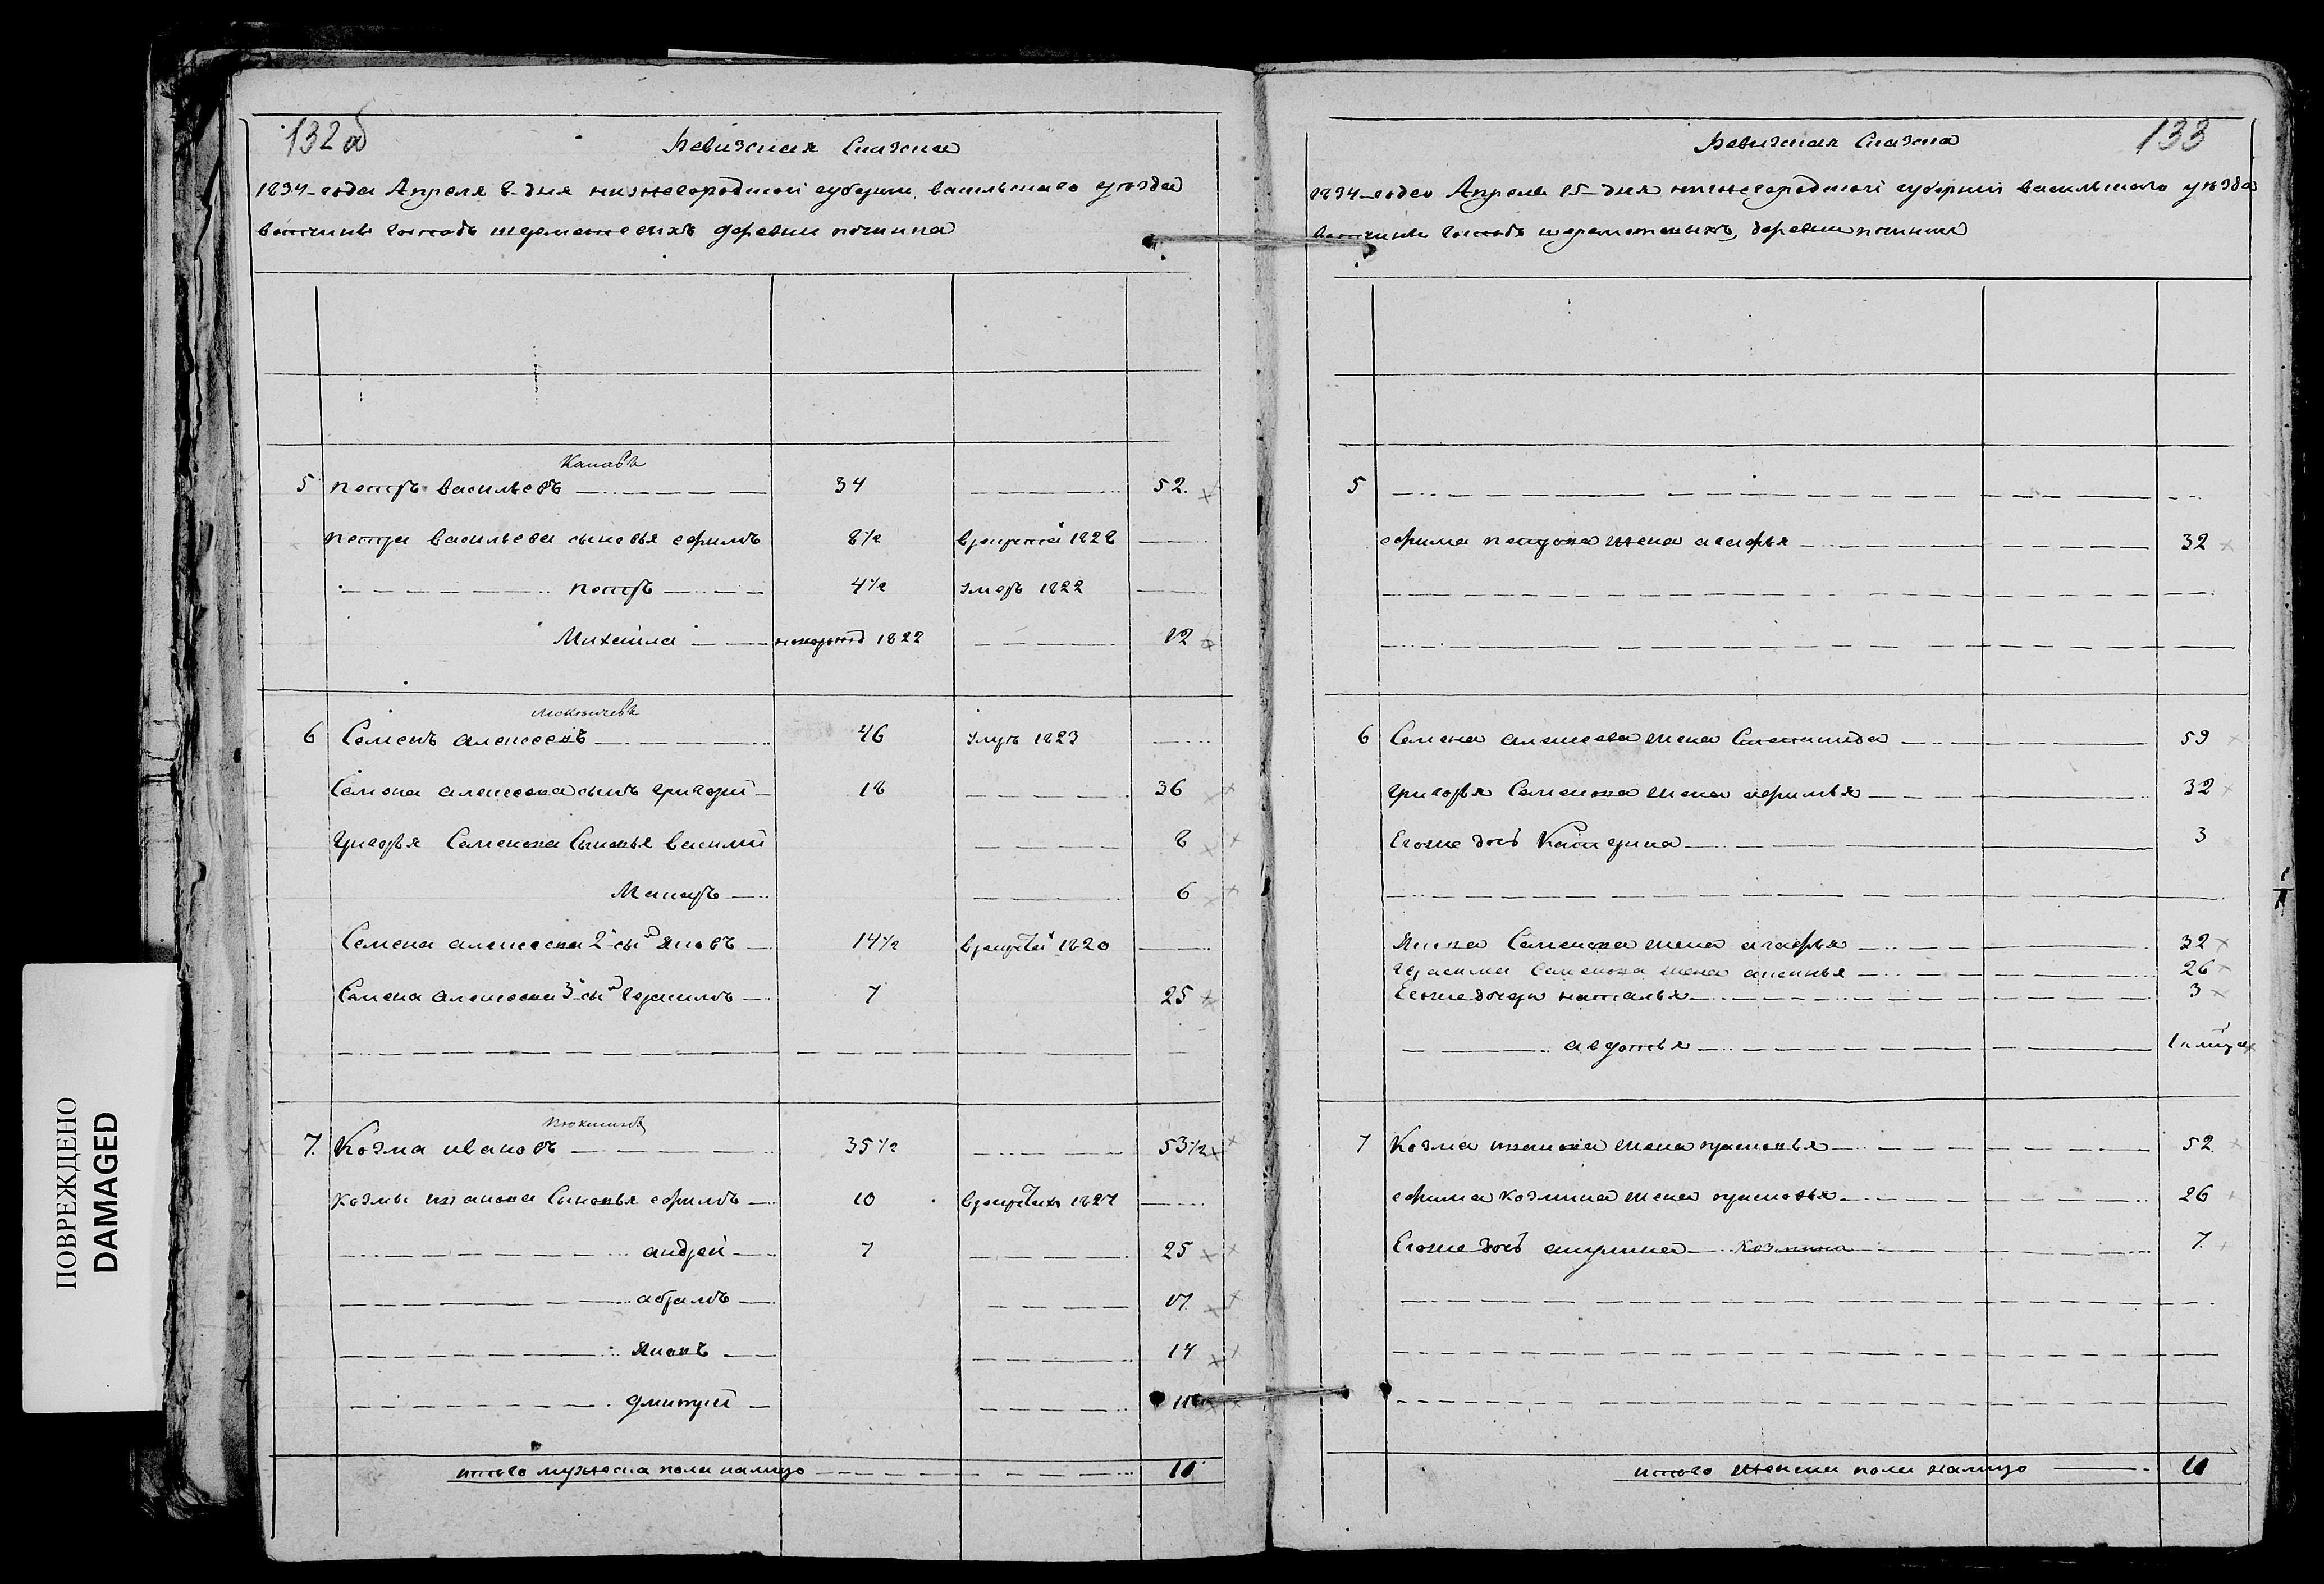 132 об
Ревизская Сказка
1834 года Апреля 8 дня нижегородской губернии васильскаго уезда
вотчины господъ шереметевыхъ деревни починка
Канавъ
5 петръ васильевъ 34 52
петра васильева сыновья ефимъ 8½ врекруты 1828
петръ 4½ умеръ 1822
Михаила новорожд 1822 12
6 Семенъ алексеевъ 46 умръ 1823
Семена алексеева сынъ григорiй 18 36
григорья Семенова Сыновья василий 8
Макаръ 6
Семена алексеева 2й сынъ яковъ 14½ врекруты 1820
Семена алексеева 3й сынъ герасимъ 7 25
7. Козма ивановъ 35½ 53½
козмы иванова Сыновья ефимъ 10 врекрутахъ 1827
андрей 7 25
абрамъ 17
Яковъ 14
дмитрий 11
итого мужеска пола налицо 11
ПОВРЕЖДЕНО
DAMAGED
133
Ревизская Сказка
1834 года Апреля 25 дня нижегородской губернии васильскаго уезда
вотчины господъ шереметевыхъ, деревни починка
5
ефима петрова жена агафья 32
6 Семена алексеева жена Степанида 59
григорья Семенова жена афимья 32
Егоже дочь Катерина 3
Якова Семенова жена агафья 32
герасима Семенова жена аксинья 26
Егоже дочери наталья 3
авдотья
7 Козма иванова жена прасковья 52
ефима козмина жена прасковья 26
Егоже дочь акулина козмина 7.
итого женска пола налицо 11